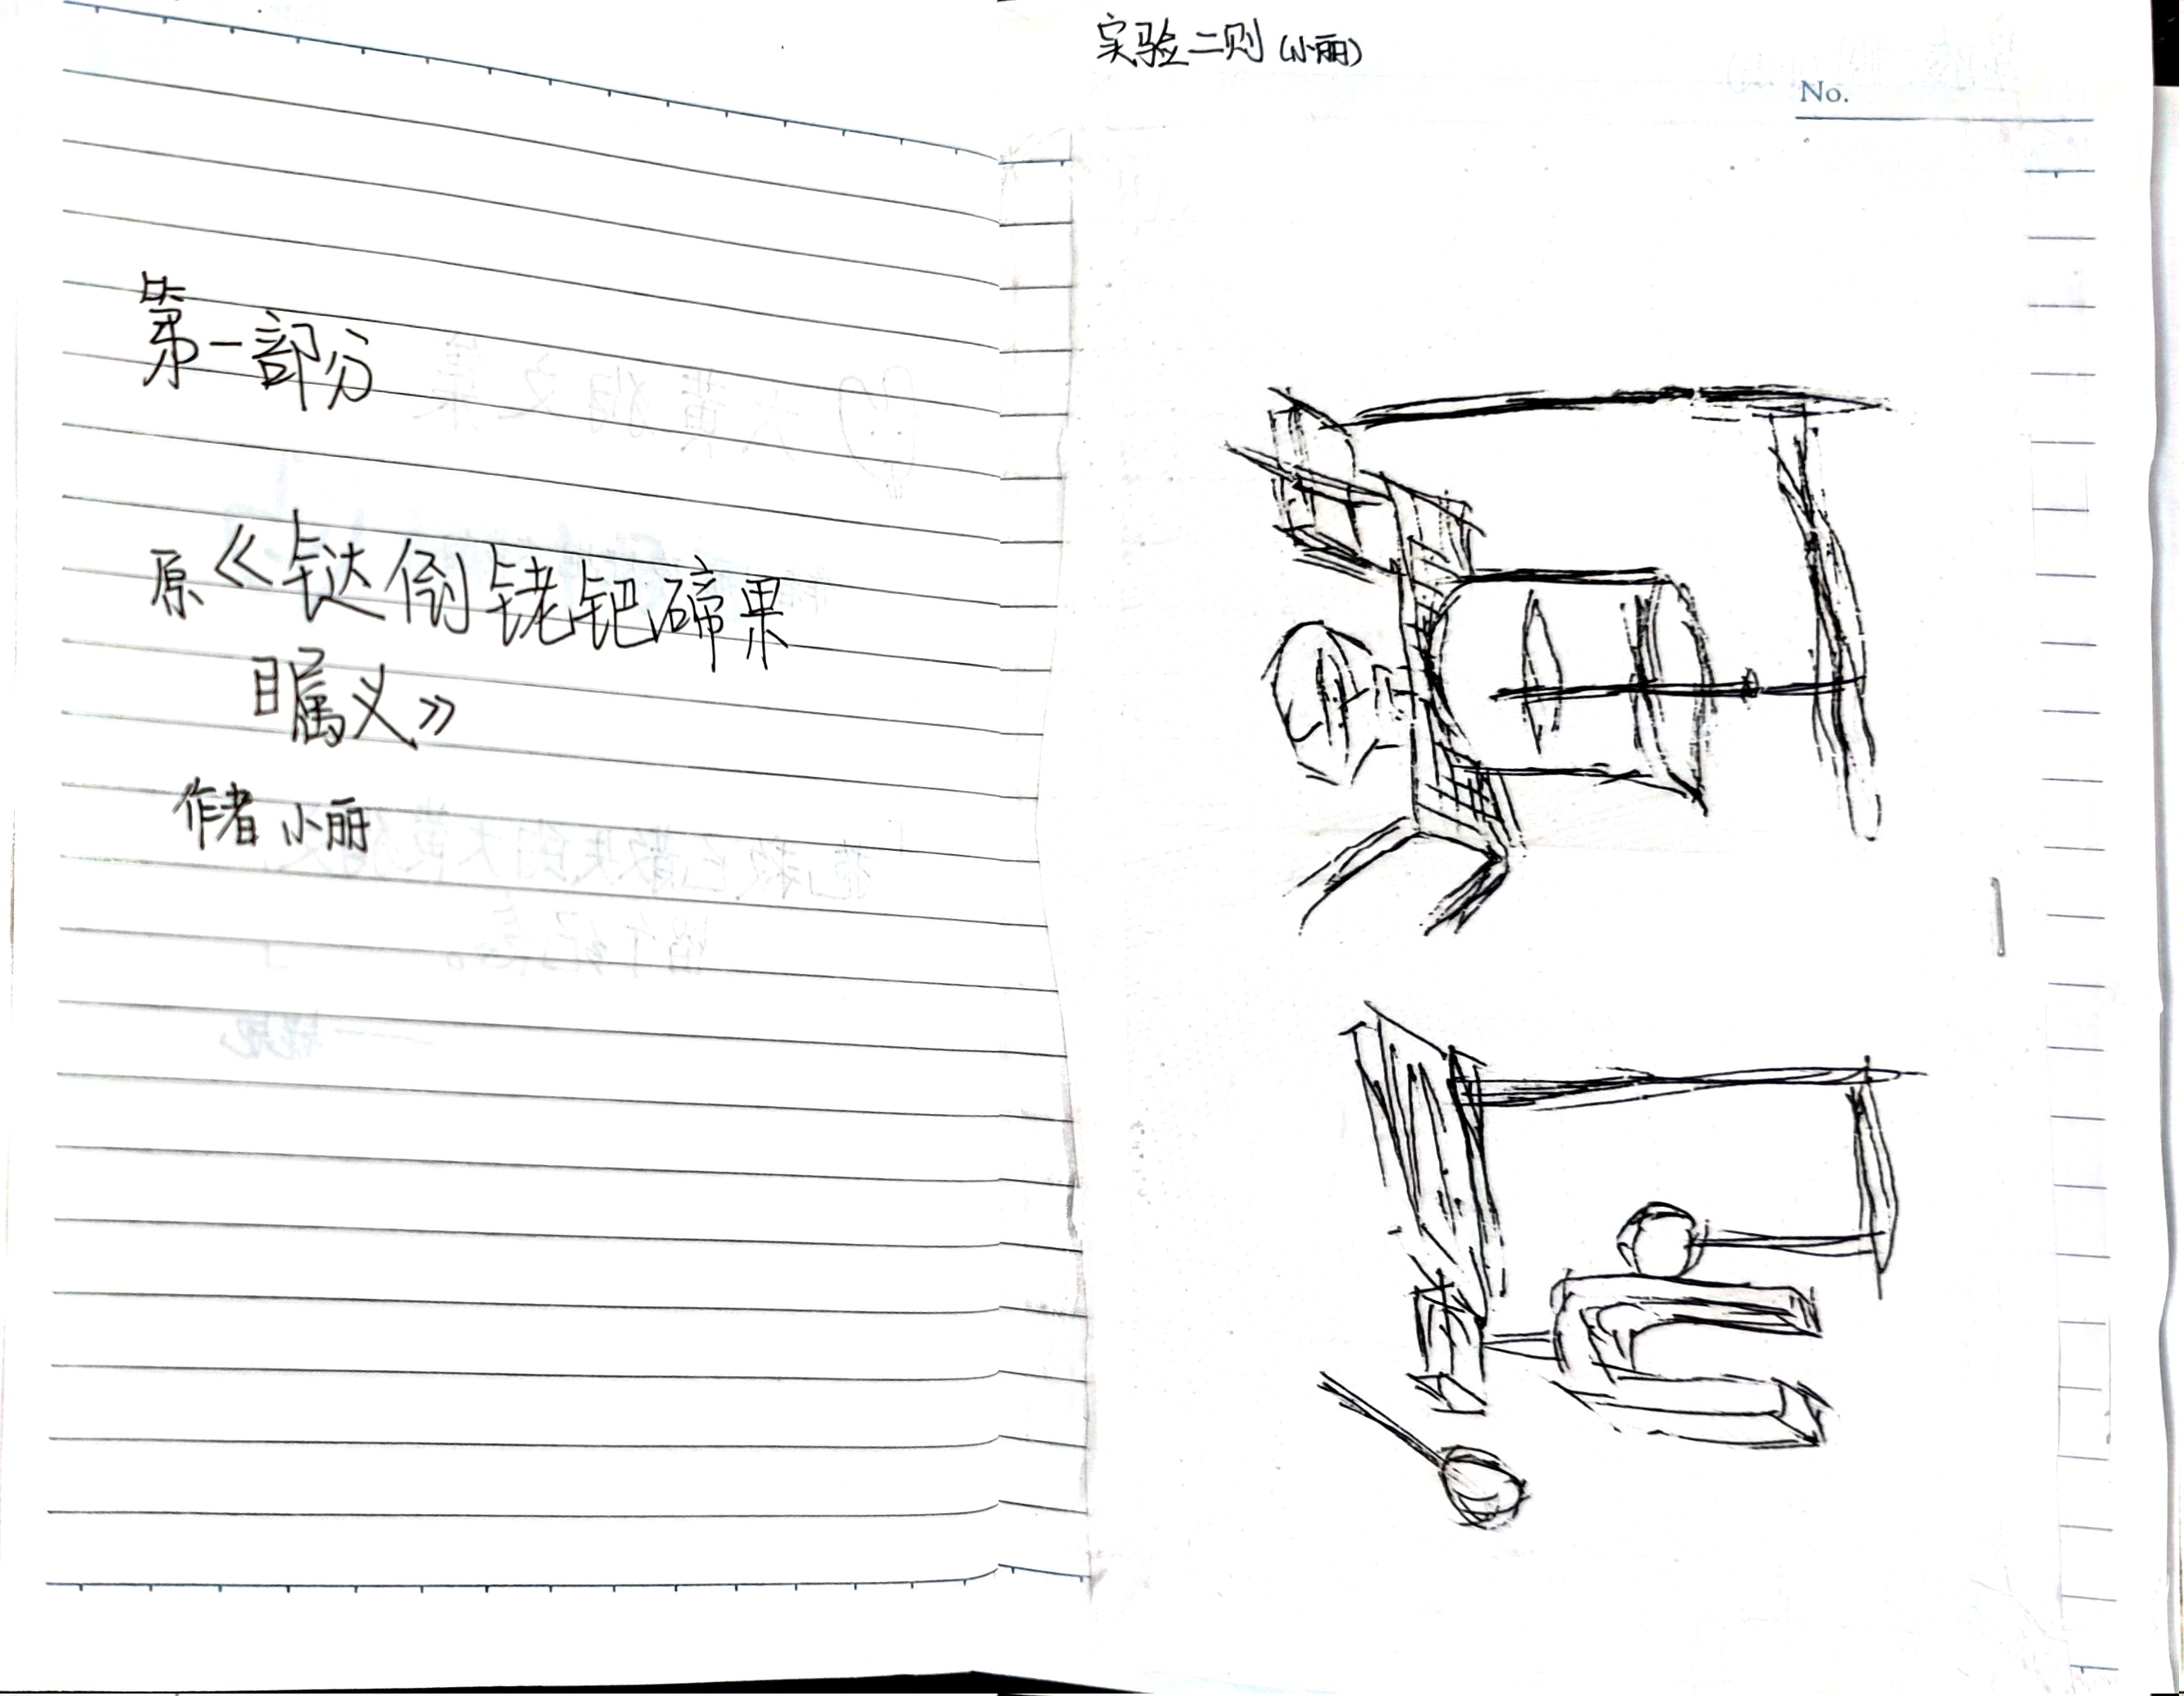 第一部分
原《钛倒铑钯碲果
瞩义》
作者 小丽
实验二则(小丽)
No.